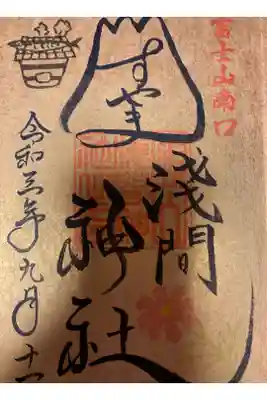 富士山南口
すやま
淺間
神社
令和三年九月十